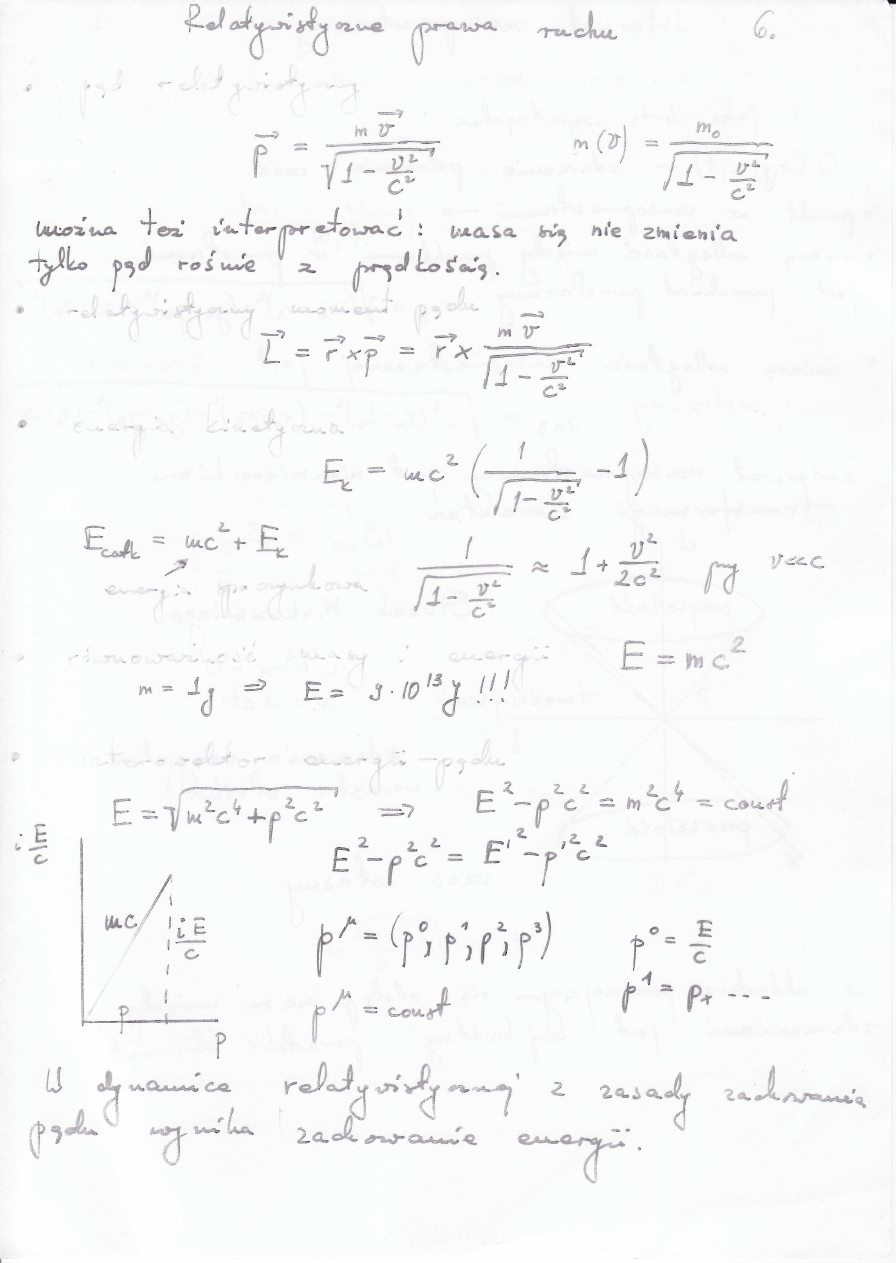 Relatywistyczne prawa ruchu 6.
• pęd relatywistyczny
p⃗ = m v⃗ / √(1 - v²/c²)    m(v) = m₀ / √(1 - v²/c²)
można też interpretować: masa się nie zmienia
tylko pęd rośnie z prędkością.
• relatywistyczny moment pędu
L⃗ = r⃗ × p⃗ = r⃗ × m v⃗ / √(1 - v²/c²)
• energia kinetyczna
E_k = mc² (1 / √(1 - v²/c²) - 1)
E_całk = mc² + E_k    1 / √(1 - v²/c²) ≈ 1 + v²/2c² przy v<<c
energia spoczynkowa
• równoważność masy i energii    E = mc²
m = 1g ⇒ E = 9·10¹³ J !!!
• czterowektor energii-pędu
E = √(m²c⁴ + p²c²) ⇒ E² - p²c² = m²c⁴ = const
E² - p²c² = E'² - p'²c²
i E/c
mc
i E/c
p
p
p^μ = (p⁰, p¹, p², p³)    p⁰ = E/c
p^μ = const    p¹ = pₓ ---
W dynamice relatywistycznej z zasady zachowania
pędu wynika zachowanie energii.